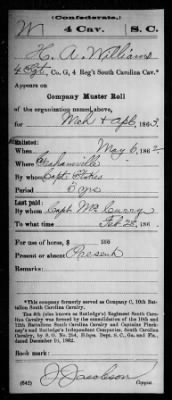 (Confederate.)
W 4 Cav. S. C.
H. A. Williams
4 Sgt, Co. G, 4 Reg't South Carolina Cav.*
Appears on
Company Muster Roll
of the organization named above,
for Mch & Apl, 1863.
Enlisted:
When May 6, 1862
Where Grahamville
By whom Capt. Stokes
Period 3 yrs
Last paid:
By whom Capt. McCurry
To what time Feb 28, 186
For use of horse, $ 100
Present or absent Present
Remarks:
*This company formerly served as Company C, 10th Battalion
South Carolina Cavalry.
The 4th (also known as Rutledge's) Regiment South Carolina
Cavalry was formed by the consolidation of the 10th and
12th Battalions South Carolina Cavalry and Captains Pinckney's
and Rutledge's Independent Companies, South Carolina
Cavalry, by S. O. No. 254, Hdqrs. Dept. S. C., Ga. and Fla.,
dated December 16, 1862.
Book mark:
(642) J. Jacobson
Copyist.